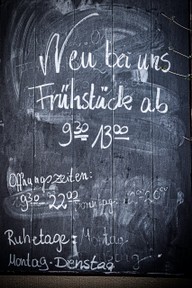 Neu bei uns
Frühstück ab
9³⁰ 13⁰⁰
Öffnungszeiten:
9³⁰ 22⁰⁰
Ruhetage: Montag
Montag - Dienstag